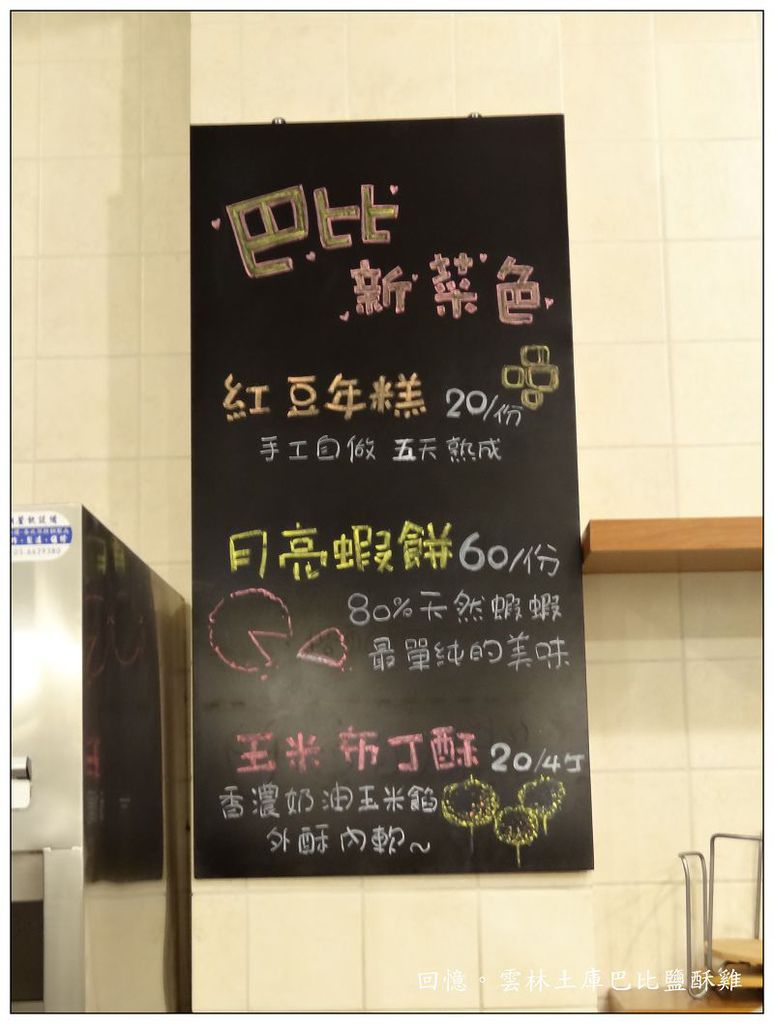 巴比
新菜色
紅豆年糕 20/份
手工自做 五天熟成
月亮蝦餅 60/份
80%天然蝦蝦
最單純的美味
玉米布丁酥 20/4ㄎ
香濃奶油玉米餡
外酥內軟~
回憶。雲林土庫巴比鹽酥雞